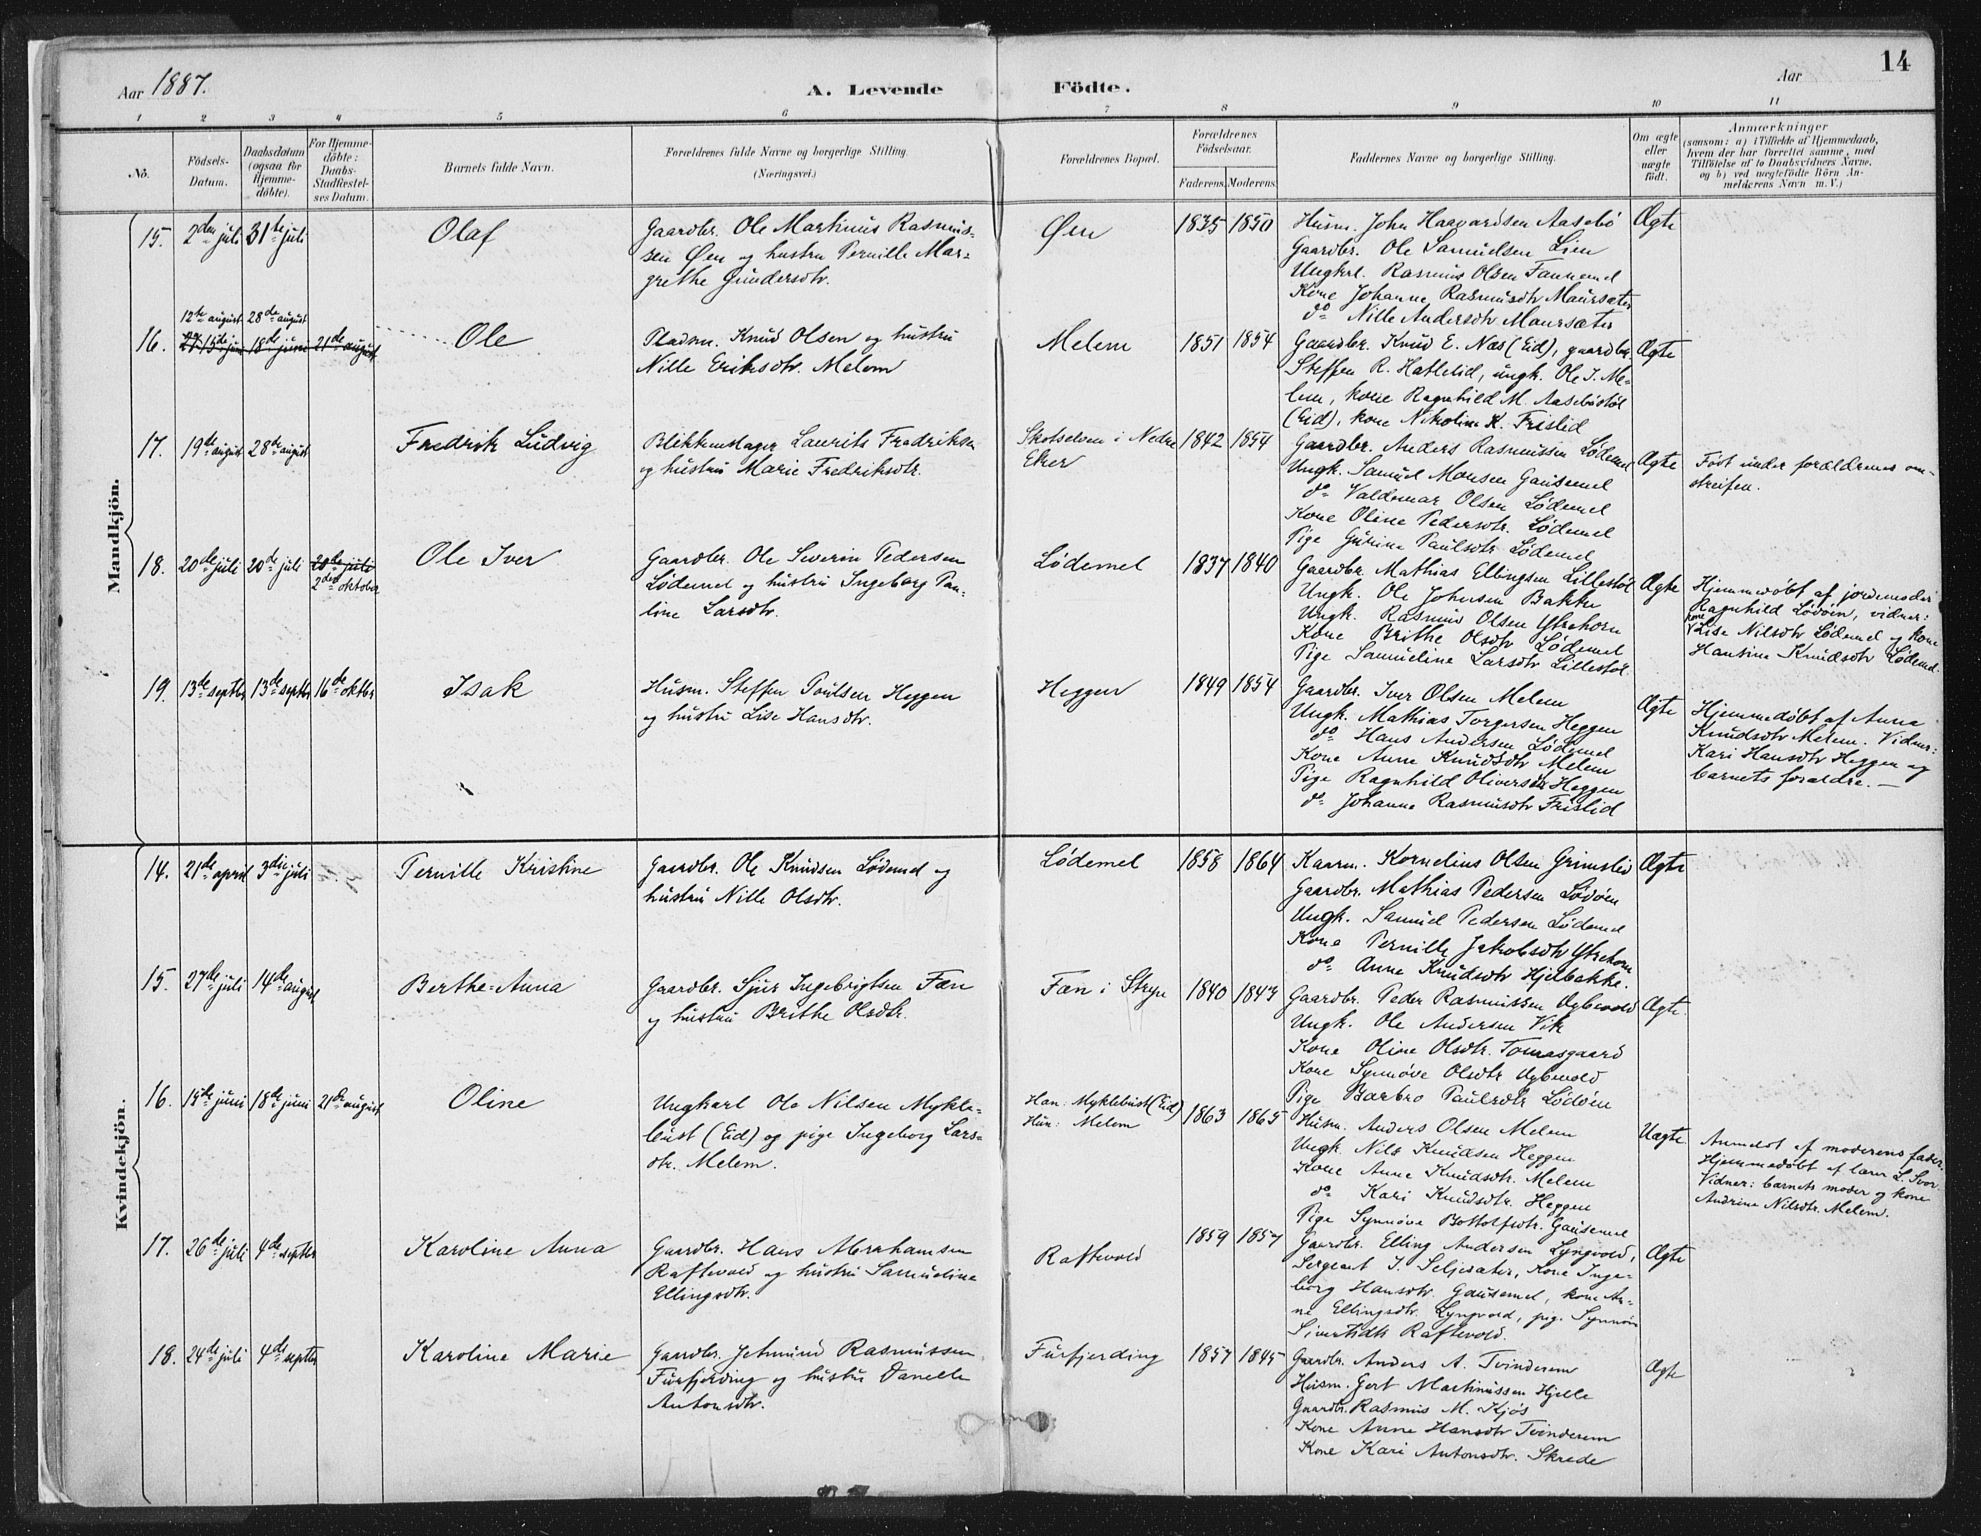 14
Aar 1887.
A. Levende Födte.
Aar
1 2 3 4 5 6 7 8 9 10 11
No.
Födsels-
Datum.
Daabsdatum
(ogsaa for
Hjemme-
döbte).
For Hjemme-
döbte:
Daabs-
Stadfæstel-
ses Datum.
Barnets fulde Navn.
Forældrenes fulde Navne og borgerlige Stilling.
(Næringsvei.)
Forældrenes Bopæl.
Forældrenes
Födselsaar.
Faderens. Moderens.
Faddernes Navne og borgerlige Stilling.
Om ægte
eller
uægte
födt.
Anmærkninger
(saasom: a) i Tilfælde af Hjemmedaab,
hvem der har forrettet samme, med
Tilföielse af to Daabsvidners Navne,
og b) ved uægtefödte Börn An-
melderens Navn m. V.)
Mandkjön.
15. 2den juli 31te juli
Olaf
Gaardbr. Ole Martinus Rasmus-
sen Øen og hustru Pernille Mar-
grethe Gundersdtr.
Øen
1835 1850
Husm. John Haavardsen Aasebø
Gaardbr. Ole Samuelsen Lien
Ungkrl. Rasmus Olsen Fannemel
Kone Johanne Rasmusdtr Maursæter
do Nille Andersdtr Maursæter
Ægte
12te august 28de august
16. 15de juni 18de juni 21de august
Ole
Pladsm. Knud Olsen og hustru
Nille Eriksdtr. Melem
Melem
1851 1854
Gaardbr. Knud E. Næs (Eid), gaardbr.
Steffen R. Hatlelid, ungk. Ole I. Me-
lem, kone Ragnhild M. Aasebøstøl
(Eid), kone Nikoline K. Frislid
Ægte
17. 19de august 28de august
Fredrik Ludvig
Blikkenslager Laurits Fredriksen
og hustru Marie Fredriksdtr.
Skotselven i Nedre
Eker
1842 1854
Gaardbr. Anders Rasmussen Lødemel
Ungk. Samuel Monsen Gausemel
do Valdemar Olsen Lødemel
Kone Oline Pedersdtr. Lødemel
Pige Gurine Paulsdtr. Lødemel
Ægte
Født under forældrenes om-
streifen.
18. 20de juli 20de juli 20de juli
2den oktober
Ole Iver
Gaardbr. Ole Severin Pedersen
Lødemel og hustru Ingeborg Pau-
line Larsdtr.
Lødemel
1837 1840
Gaardbr. Mathias Ellingsen Lillestøl
Ungk. Ole Johnsen Bakke
Ungk. Rasmus Olsen Ytrehorn
Kone Brithe Olsdtr Lødemel
Pige Samueline Larsdtr Lillestøl
Ægte
Hjemmedøbt af jordemoder
Ragnhild Lødøen, vidner:
kone
Lise Nilsdtr Lødemel og kone
Hansine Knudsdtr Lødemel
19. 13de septbr 13de septbr 16de oktbr
Isak
Husm. Steffen Poulsen Heggen
og hustru Lise Hansdtr.
Heggen
1849 1854
Gaardbr. Iver Olsen Melem
Ungk. Mathias Torgersen Heggen
do Hans Andersen Lødemel
Kone Anne Knudsdtr Melem
Pige Ragnhild Oliversdtr Heggen
do Johanne Rasmusdtr Frislid
Ægte
Hjemmedøbt af Anna
Knudsdtr Melem. Vidner:
Kari Hansdtr Heggen og
barnets forældre. —
Kvindekjön.
14. 21de april 3die juli
Pernille Kristine
Gaardbr. Ole Knudsen Lødemel og
hustru Nille Olsdtr.
Lødemel
1858 1864
Kaarm. Kornelius Olsen Grimslid
Gaardbr. Mathias Pedersen Lødøen
Ungk. Samuel Pedersen Lødemel
Kone Pernille Jakobsdtr Ytrehorn
do Anne Knudsdtr Hjelbakke.
Ægte
15. 27de juli 14de august
Berthe-Anna
Gaardbr. Sjur Ingebrigtsen Fæn
og hustru Brithe Olsdtr.
Fæn i Stryn
1840 1843
Gaardbr. Peder Rasmussen Nybevold
Ungk. Ole Andersen Vik
Kone Oline Olsdtr. Tomasgaard
Kone Synnøve Olsdtr Nybevold
Pige Barbro Paulsdtr Lødøen
Ægte.
16. 15de juni 18de juni 21de august
Oline
Ungkarl Ole Nilsen Mykle-
bust (Eid) og pige Ingeborg Lars-
dtr. Melem.
Han: Myklebust (Eid)
Hun: Melem
1863 1865
Husm. Anders Olsen Melem
Ungk. Nils Knudsen Heggen
Kone Anne Knudsdtr. Melem
do Kari Knudsdtr. Heggen
Pige Synnøve Bottolfsdtr. Gausemel
Uægte
Anmeldt af moderens fader.
Hjemmedøbt af lærer L. Svor.
Vidner: barnets moder og kone
Andrine Nilsdtr. Melem.
17. 26de juli 4de septbr
Karoline Anna
Gaardbr. Hans Abrahamsen
Raftevold og hustru Samueline
Ellingsdtr.
Raftevold
1859 1857
Gaardbr. Elling Andersen Lyngvold,
Sergeant I. Seljesæter, Kone Inge-
borg Hansdtr. Gausemel, kone An-
ne Ellingsdtr. Lyngvold, pig. Synnøve
Sivertsdtr Raftevold.
Ægte
18. 24de juli 4de septbr
Karoline Marie
Gaardbr. Jetmund Rasmussen
Furfjerding og hustru Danelle
Antonsdtr.
Furfjerding
1857 1845
Gaardbr. Anders A. Tvinderem
Husm. Gert Martinussen Hjelle
Gaardbr. Rasmus M. Kjøs
Kone Anne Hansdtr Tvinderem
Kone Kari Antonsdtr. Skrede
Ægte